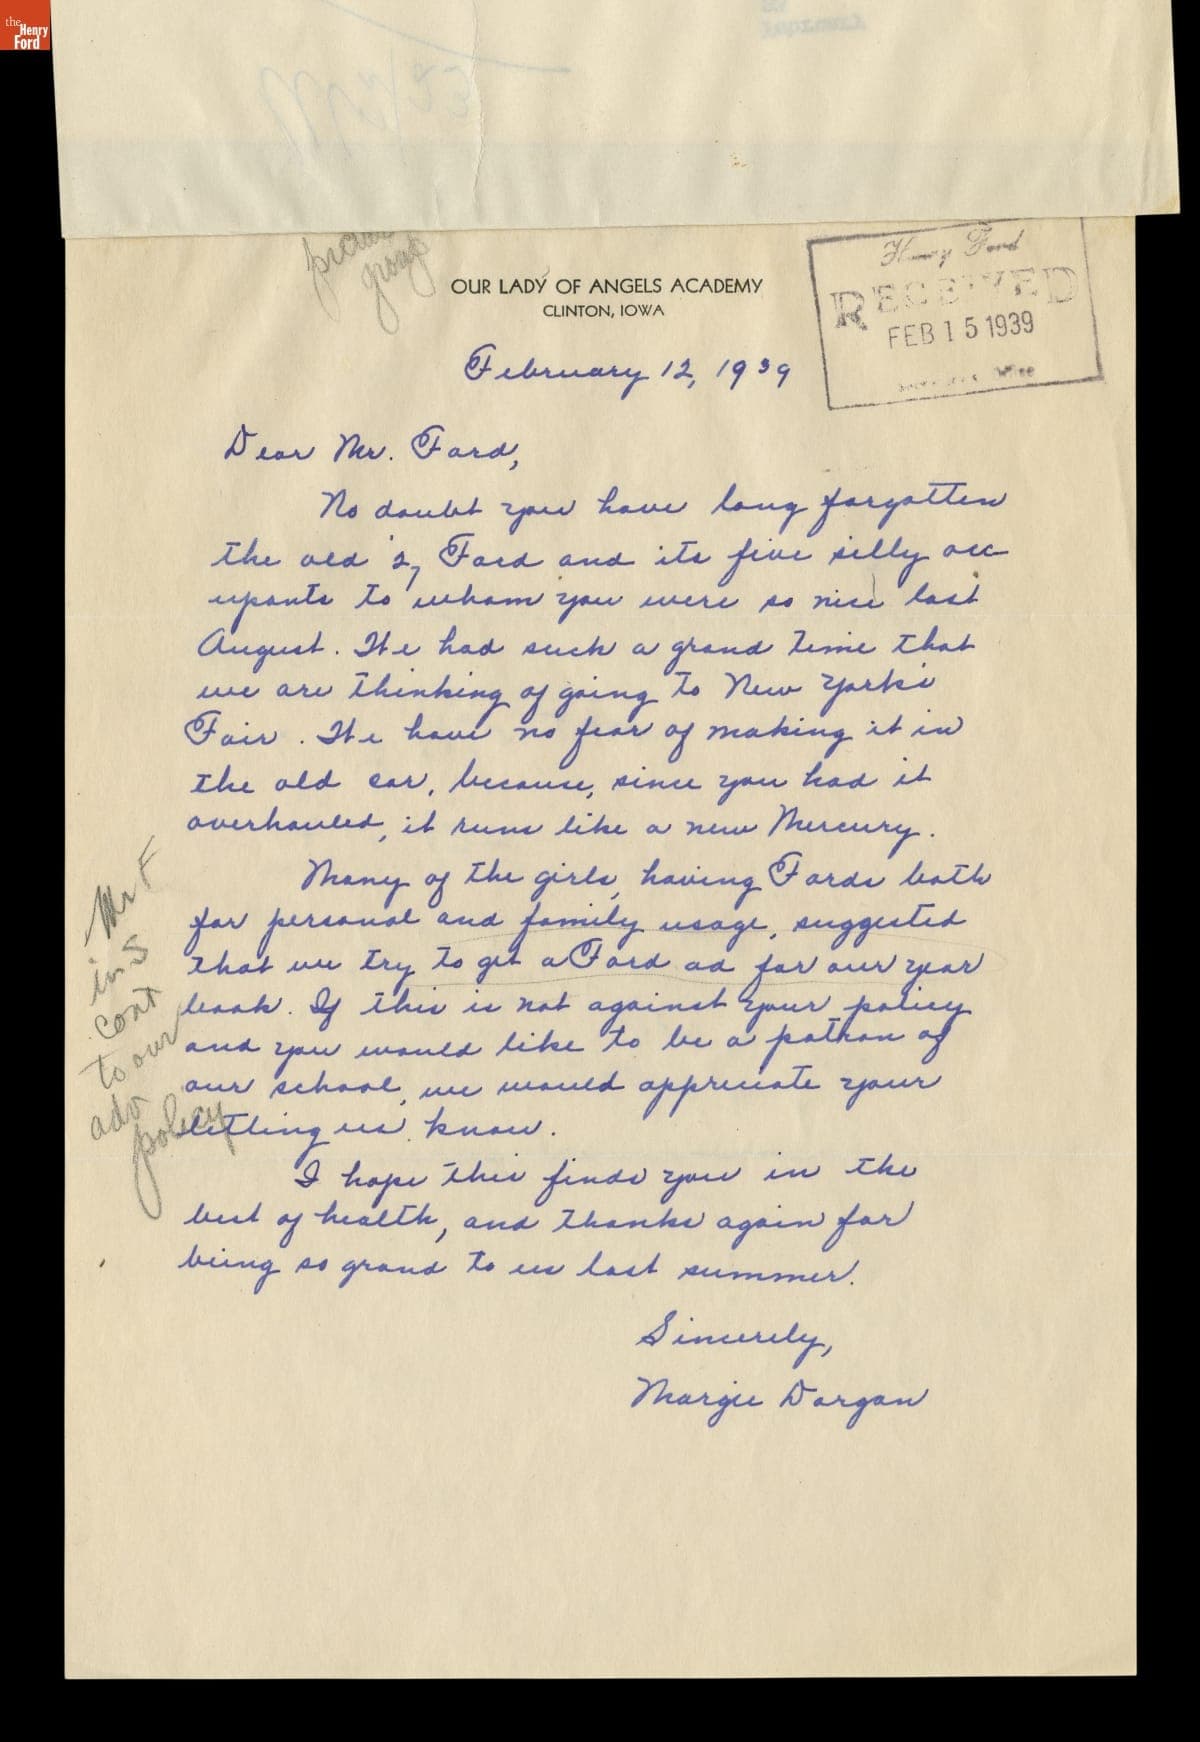 the
Henry
Ford
OUR LADY OF ANGELS ACADEMY
CLINTON, IOWA
Henry Ford
RECEIVED
FEB 15 1939
Office
February 12, 1939
Dear Mr. Ford,
No doubt you have long forgotten
the old '27 Ford and its five silly occ
upants to whom you were so nice last
August. We had such a grand time that
we are thinking of going to New York's
Fair. We have no fear of making it in
the old car, because, since you had it
overhauled, it runs like a new Mercury.
Many of the girls, having Fords both
for personal and family usage, suggested
that we try to get a Ford ad for our year
book. If this is not against your policy
and you would like to be a patron of
our school, we would appreciate your
letting us know.
I hope this finds you in the
best of health, and thanks again for
being so grand to us last summer.
Sincerely,
Margie Dorgan
Mr F
ins
cont
to our
adv
policy
group